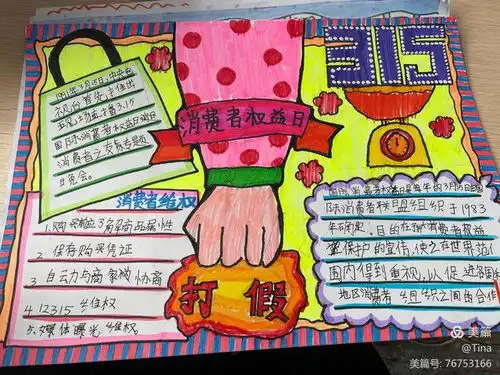 315
消费者权益日
视台首先主住出
国际消费者权益日消日
消费者之友专题
日晚会。
消费者维权
1.购买前应了解商品属性
2.保存购买凭证
3.自云力与商家协商
4.12315维权
5.媒体曝光维权。
打假
国际消费者权益日是每年的3月15日由国
际消费者联盟组织于1983
年确定,目的在扩大消费者权益
保护的宣传,使之在世界范
围内得到重视,以促进各国和
地区消费者组织之间的合作
美篇
@Tina
美篇号: 76753166